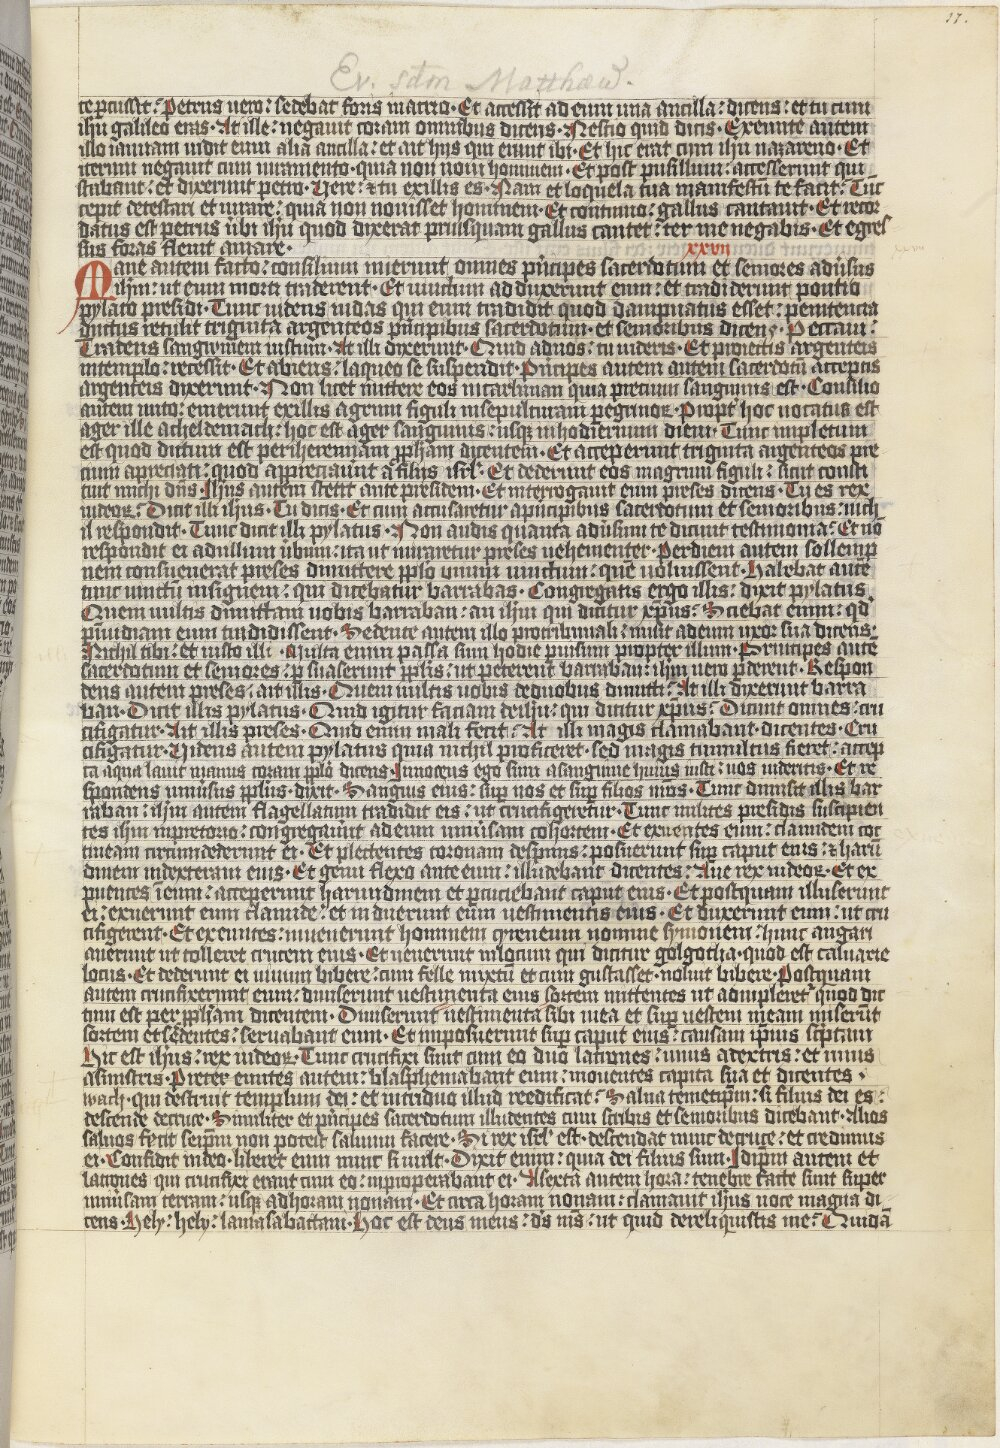 27.
Ev. sctm Matthaeu.
te percussit? Petrus uero: sedebat foris in atrio. Et accessit ad eum una ancilla: dicens: et tu cum
ihu galileo eras. At ille: negauit coram omnibus dicens. Nescio quid dicis. Exeunte autem
illo ianuam uidit eum alia ancilla: et ait hijs qui erant ibi. Et hic erat cum ihu nazareno. Et
iterum negauit cum iuramento. quia non noui hominem. Et post pusillum: accesserunt qui
stabant: et dixerunt petro. Vere: et tu ex illis es. Nam et loquela tua manifestu te facit. Tuc
cepit detestari et iurare: quia non nouisset hominem. Et continuo: gallus cantauit. Et recor
datus est petrus ubi ihu quod dixerat priusquam gallus cantet: ter me negabis. Et egres
sus foras fleuit amare. xxvij
Mane autem facto: consilium inierunt omnes pncipes sacerdotum et seniores aduisus
ihm: ut eum morti traderent. Et uinctum adduxerunt eum: et tradiderunt pontio
pylato presidi. Tunc uidens iudas qui eum tradidit quod dampnatus esset: penitencia
ductus retulit triginta argenteos pncipibus sacerdotum. et senioribus dicens. Peccaui:
Tradens sanguinem iustum. At illi dixerunt. Quid ad nos: tu uideris. Et proiectis argenteis
in templo: recessit. Et abiens: laqueo se suspendit. Pncipes autem autem sacerdotu acceptis
argenteis dixerunt. Non licet mittere eos in carbanan quia precium sanguinis est. Consilio
autem inito: emerunt ex illis agrum figuli in sepulturam pegrinoꝝ. Propt hoc uocatus est
ager ille acheldemach: hoc est ager sanguinis: usq in hodiernum diem. Tunc impletum
est quod dictum est per iheremiam ppham dicentem. Et acceperunt triginta argenteos pre
cium appreciati: quod appreciauerunt a filijs isrl. Et dederunt eos in agrum figuli: sicut consti
tuit michi dns. Ihus autem stetit ante presidem. Et interrogauit eum preses dicens. Tu es rex
iudeoꝝ? Dicit illi ihus. Tu dicis. Et cum accusaretur a pncipibus sacerdotum et senioribus: nich
il respondit. Tunc dicit illi pylatus. Non audis quanta aduisum te dicunt testimonia? Et no
respondit ei ad ullum ubum: ita ut miraretur preses uehementer. Per diem autem sollemp
nem consueuerat preses dimittere pplo unum uinctum: que uoluissent. Habebat aute
tunc uinctu insignem: qui dicebatur barrabas. Congregatis ergo illis: dixit pylatus.
Quem uultis dimittam uobis barraban: an ihm qui dicitur xpus? Sciebat enim: qd
p inuidiam eum tradidissent. Sedente autem illo pro tribunali: misit ad eum uxor sua dicens.
Nichil tibi: et iusto illi. Multa enim passa sum hodie p uisum propter illum. Principes aute
sacerdotum et seniores: p suaserunt pplis: ut peterent barraban: ihm uero pderent. Respon
dens autem preses: ait illis. Quem uultis uobis de duobus dimitti? At illi dixerunt barra
ban. Dicit illis pylatus. Quid igitur faciam de ihu: qui dicitur xpus? Dicunt omnes: cru
cifigatur. Ait illis preses. Quid enim mali fecit? At illi magis clamabant. dicentes. Cru
cifigatur. Videns autem pylatus quia nichil proficeret. sed magis tumultus fieret: accep
ta aqua lauit manus coram pplo dicens. Innocens ego sum a sanguine huius iusti: uos uideritis. Et re
spondens uniusus pplus. dixit. Sanguis eius: sup nos et sup filios nros. Tunc dimisit illis bar
raban: ihm autem flagellatum tradidit eis: ut crucifigeretur. Tunc milites presidis suscipien
tes ihm in pretorio: congregauerunt ad eum uniusam cohortem. Et exuentes eum: clamidem coc
tineam circumdederunt ei. Et plectentes coronam de spinis: posuerunt sup caput eius: et haru
dinem in dexteram eius. Et genu flexo ante eum: illudebant dicentes: Aue rex iudeoꝝ. Et ex
puentes i eum: acceperunt harundinem et pcuciebant caput eius. Et postquam illuserunt
ei: exuerunt eum clamide: et induerunt eum uestimentis eius. Et duxerunt eum: ut cru
cifigerent. Et exeuntes: inuenerunt hominem cyreneum nomine symonem: hunc angari
auerunt ut tolleret crucem eius. Et uenerunt in locum qui dicitur golgotha. quod est caluarie
locus. Et dederunt ei uinum bibere: cum felle mixtu et cum gustasset. noluit bibere. Postquam
autem crucifixerunt eum: diuiserunt uestimenta eius sortem mittentes ut adimpleret quod dic
tum est per ppham dicentem. Diuiserunt uestimenta sibi mea et sup uestem meam miserunt
sortem et sedentes: seruabant eum. Et imposuerunt sup caput eius: causam ipsius scptam
Hic est ihus: rex iudeoꝝ. Tunc crucifixi sunt cum eo duo latrones: unus a dextris: et unus
a sinistris. Preter euntes autem: blasphemabant eum: mouentes capita sua et dicentes.
wach. qui destruit templum dei: et in triduo illud reedificat: Salua temetipm: si filius dei es:
descende de cruce. Similiter et pncipes sacerdotum illudentes cum scribis et senioribus dicebant. Alios
saluos fecit seipm non potest saluum facere. Si rex isrl est. descendat nunc de cruce: et credimus
ei. Confidit in deo. liberet eum nunc si uult. Dixit enim: quia dei filius sum. Idipm autem et
latrones qui crucifixi erant cum eo: inproperabant ei. A sexta autem hora: tenebre facte sunt super
uniusam terram: usq ad horam nonam. Et circa horam nonam: clamauit ihus uoce magna di
cens. Hely: hely: lamasabactani. Hoc est deus meus: ds ms: ut quid dereliquistis me? Quida